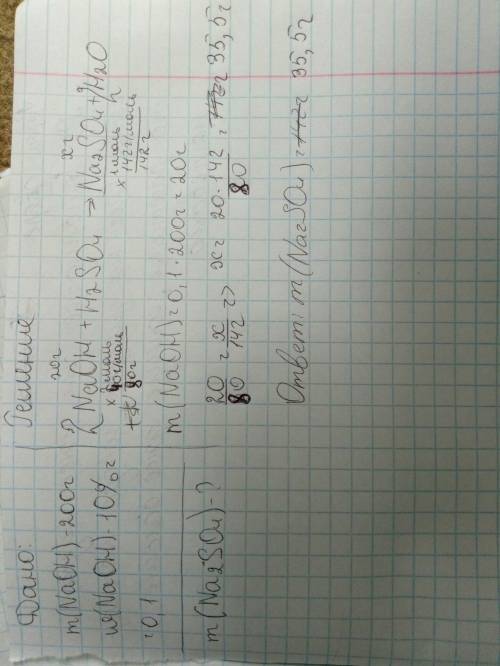 Дано:
m(NaOH) - 200г
ω(NaOH) - 10%
= 0,1
m(Na2SO4) - ?
Решение
20г
xг
2NaOH + H2SO4 => Na2SO4 + 2H2O
2моль
1моль
x 40г/моль
x 142г/моль
80г
142г
m(NaOH) = 0,1 · 200г = 20г
20/80 = x/142 => x = 20·142/80 = 35,5г
Ответ: m(Na2SO4) = 35,5г